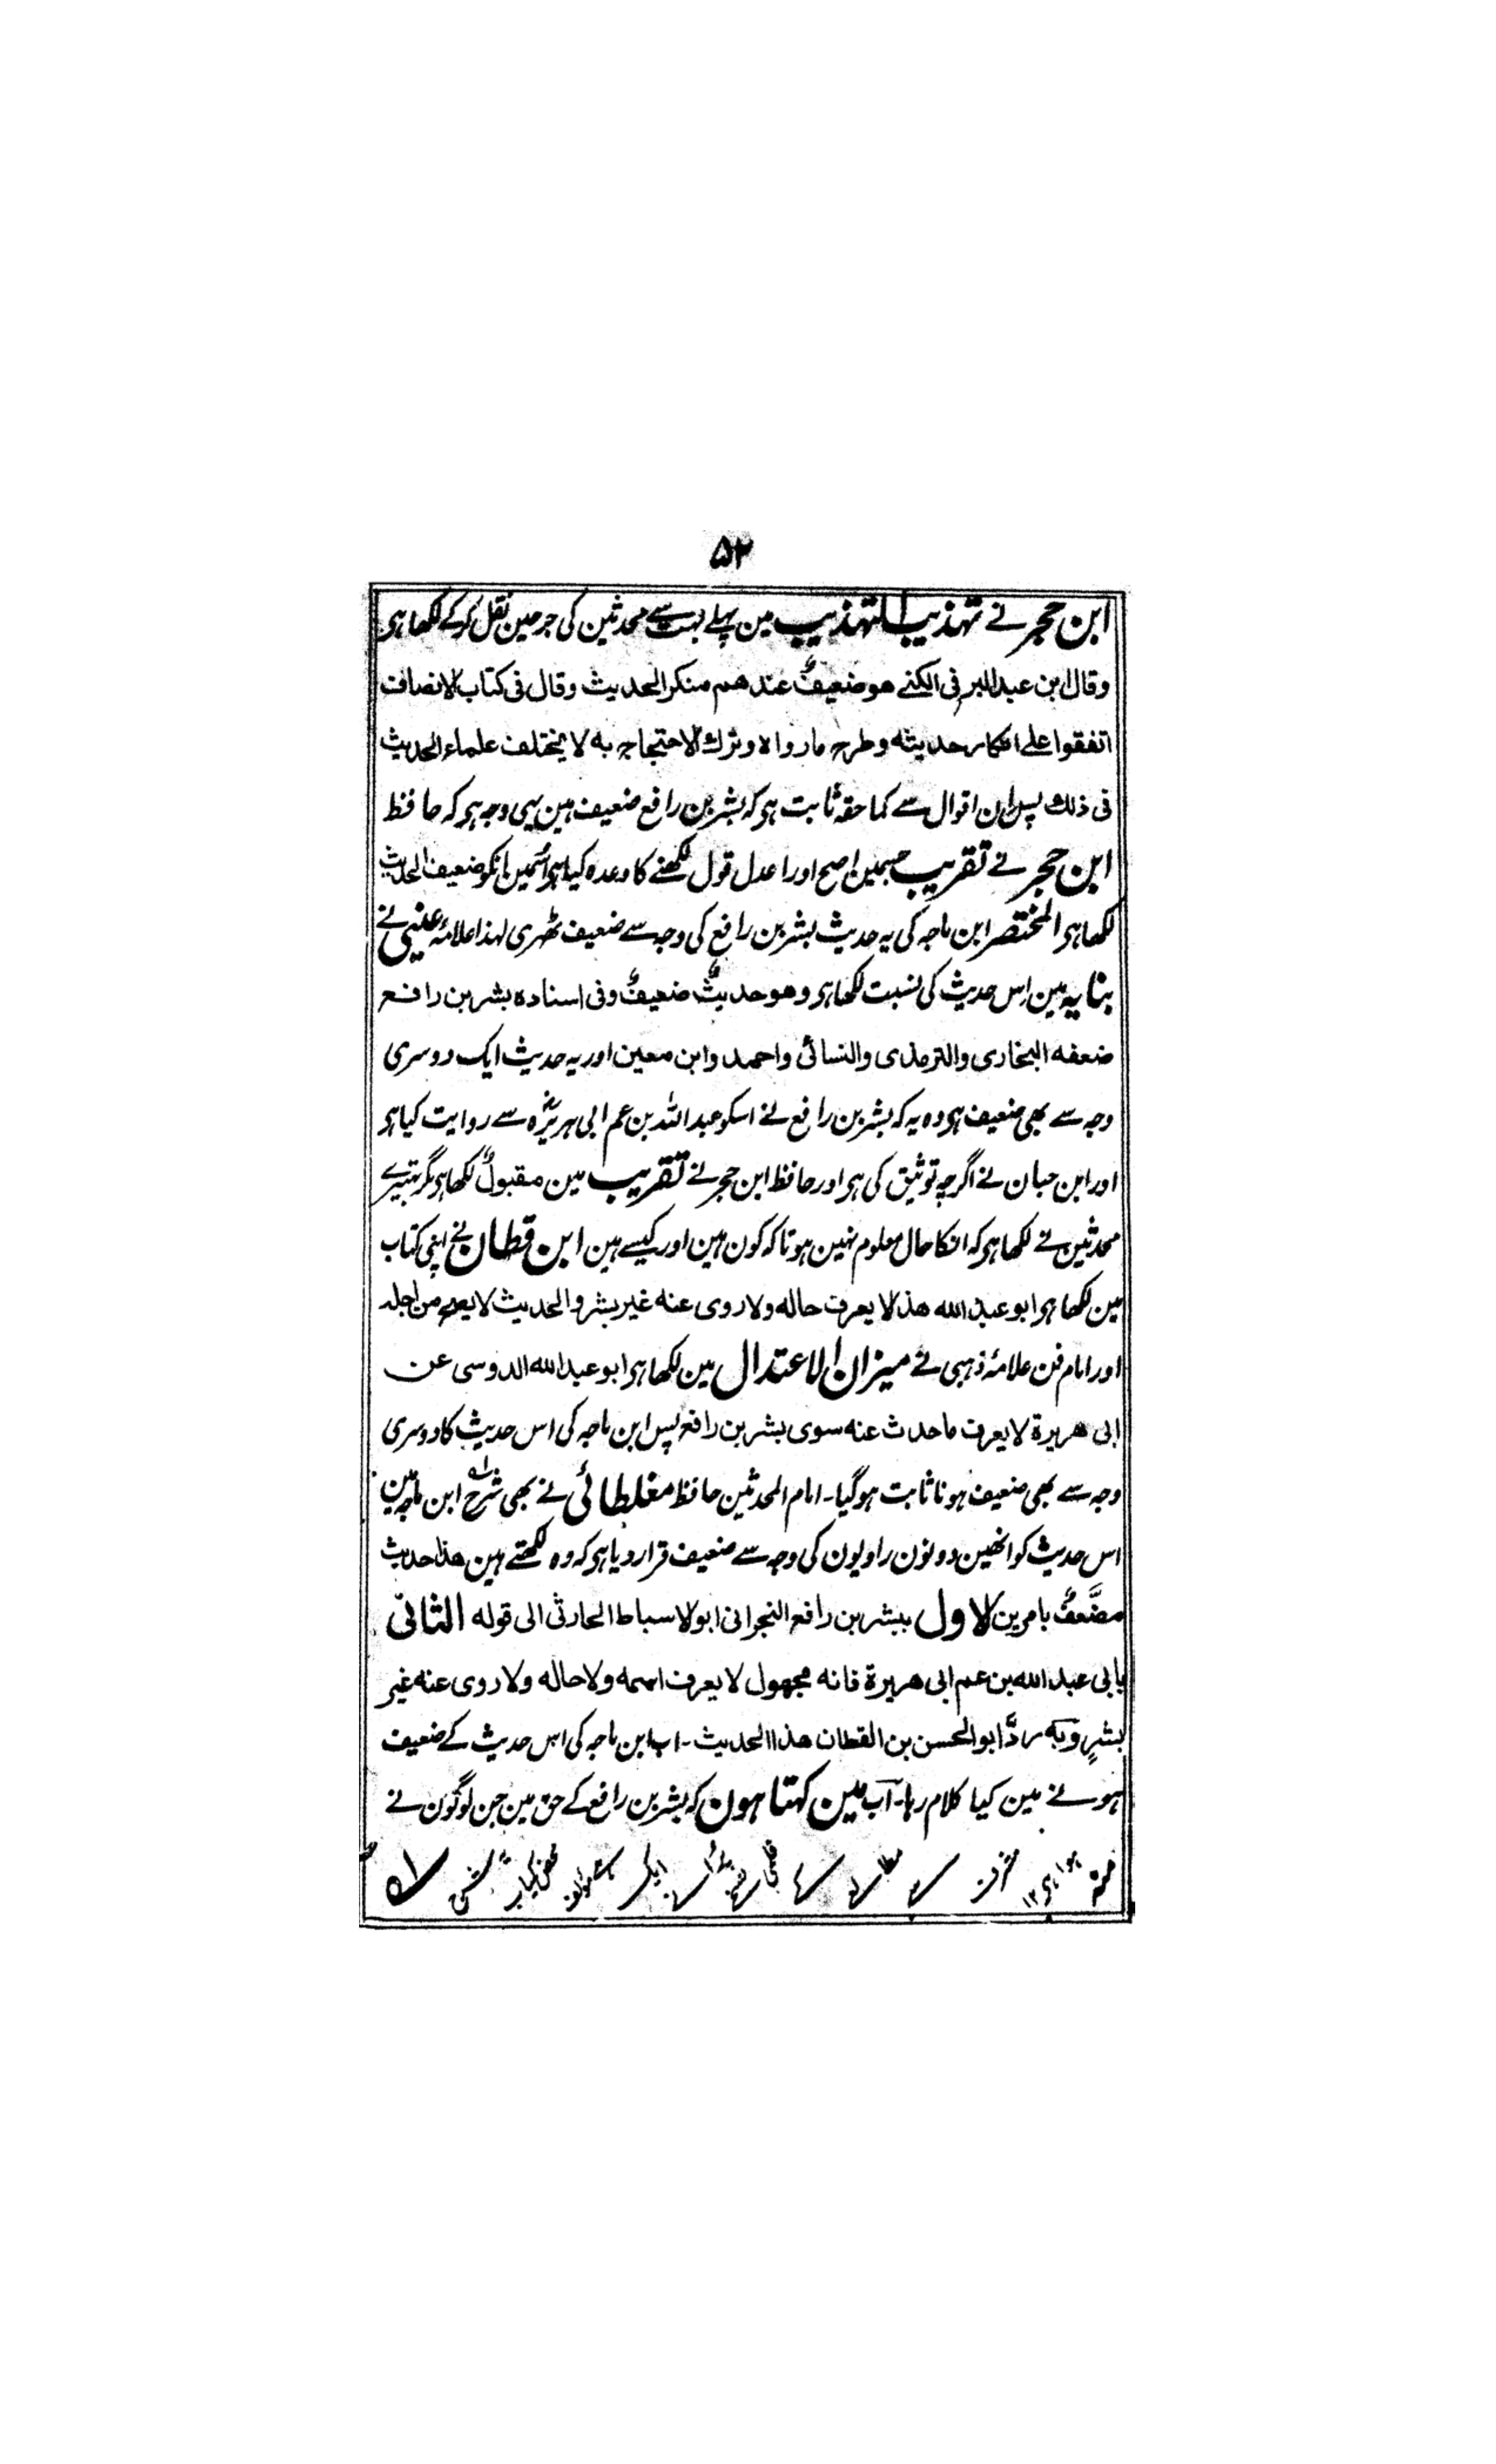 ۵۲
ابن حجر نے تہذیب التہذیب مین پہلے بہت سے محدثین کی جرحین نقل کرکے لکھا ہی
وقال ابن عبد البر فی الکنے ھو ضعیفٌ عندھم منکر الحدیث وقال فی کتاب الانصاف
اتفقوا علے انکار حدیثه وطرح مارواه وترك الاحتجاج به لا یختلف علماء الحدیث
فی ذلك پس ان اقوال سے کما حقہ ثابت ہو کہ بشر بن رافع ضعیف ہین یہی وجہ ہو کہ حافظ
ابن حجر نے تقریب جسمین اصح اور اعدل قول لکھنے کا وعدہ کیا ہو اُسمین انکو ضعیف الحدیث
لکھا ہو المختصر ابن ماجہ کی یہ حدیث بشر بن رافع کی وجہ سے ضعیف ٹھری لہذا علامۂ عینی نے
بنایہ مین اس حدیث کی نسبت لکھا ہو وھو حدیثٌ ضعیفٌ وفی اسناده بشر بن رافع
ضعفه البخاری والترمذی والنسائی واحمد وابن معین اور یہ حدیث ایک دوسری
وجہ سے بھی ضعیف ہو وہ یہ کہ بشر بن رافع نے اسکو عبد اللہ بن عم ابی ہریرہؓ سے روایت کیا ہو
اور ابن حبان نے اگرچہ توثیق کی ہو اور حافظ ابن حجر نے تقریب مین مقبولٌ لکھا ہو مگر بتیرے
محدثین نے لکھا ہو کہ انکا حال معلوم نہین ہوتا کہ کون ہین اور کیسے ہین ابن قطان نے اپنی کتاب
مین لکھا ہو ابو عبد الله ھذا لا یعرف حاله ولا روی عنه غیر بشر والحدیث لا یصح من اجله
اور امام فن علامۂ ذہبی نے میزان الاعتدال مین لکھا ہو ابو عبد الله الدوسی عن
ابی ھریرة لا یعرف ما حدث عنه سوی بشر بن رافع پس ابن ماجہ کی اس حدیث کا دوسری
وجہ سے بھی ضعیف ہونا ثابت ہوگیا۔ امام المحدثین حافظ مغلطائی نے بھی شرح ابن ماجہ مین
اس حدیث کو انھین دونون راویون کی وجہ سے ضعیف قرار دیا ہو کہ وہ لکھتے ہین ھذا حدیث
مضَّعفٌ بامرین الاول ببشر بن رافع النجرانی ابو لاسباط الحارثی الی قوله الثانی
بابی عبد الله بن عم ابی ھریرة فانه مجھول لا یعرف اسمه ولا حاله ولا روی عنه غیر
بشرٍ وبه ردَّ ابو الحسن بن القطان ھذا الحدیث۔ اب ابن ماجہ کی اس حدیث کے ضعیف
ہونے مین کیا کلام رہا۔ اب مین کہتا ہون کہ بشر بن رافع کے حق مین جن لوگون نے